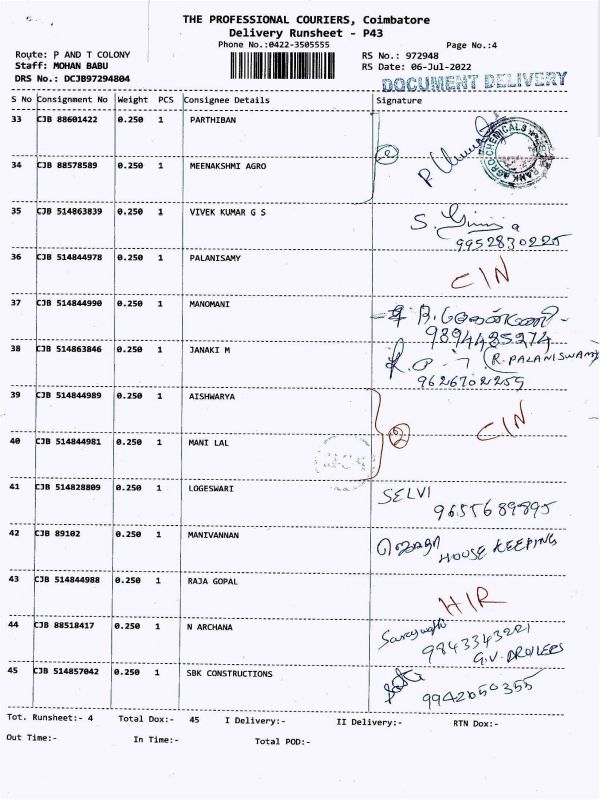 THE PROFESSIONAL COURIERS, Coimbatore
Delivery Runsheet - P43
Phone No.:0422-3505555
Page No.:4
Route: P AND T COLONY
RS No.: 972948
Staff: MOHAN BABU
RS Date: 06-Jul-2022
DRS No.: DCJB97294804
DOCUMENT DELIVERY
S No Consignment No Weight PCS Consignee Details Signature
33 CJB 88601422 0.250 1 PARTHIBAN
AGRO CHEMICALS
34 CJB 88578589 0.250 1 MEENAKSHMI AGRO
35 CJB 514863839 0.250 1 VIVEK KUMAR G S
9952830225
36 CJB 514844978 0.250 1 PALANISAMY CIN
37 CJB 514844990 0.250 1 MANOMANI
9894485274
38 CJB 514863846 0.250 1 JANAKI M (R.PALANISWAMY)
9626702259
39 CJB 514844989 0.250 1 AISHWARYA
2 CIN
40 CJB 514844981 0.250 1 MANI LAL
41 CJB 514828809 0.250 1 LOGESWARI SELVI
9655689895
42 CJB 89102 0.250 1 MANIVANNAN HOUSE KEEPING
43 CJB 514844988 0.250 1 RAJA GOPAL HIR
44 CJB 88518417 0.250 1 N ARCHANA
9843343221
G.V. BROILERS
45 CJB 514857042 0.250 1 SBK CONSTRUCTIONS
9942050355
Tot. Runsheet:- 4 Total Dox:- 45 I Delivery:- II Delivery:- RTN Dox:-
Out Time:- In Time:- Total POD:-